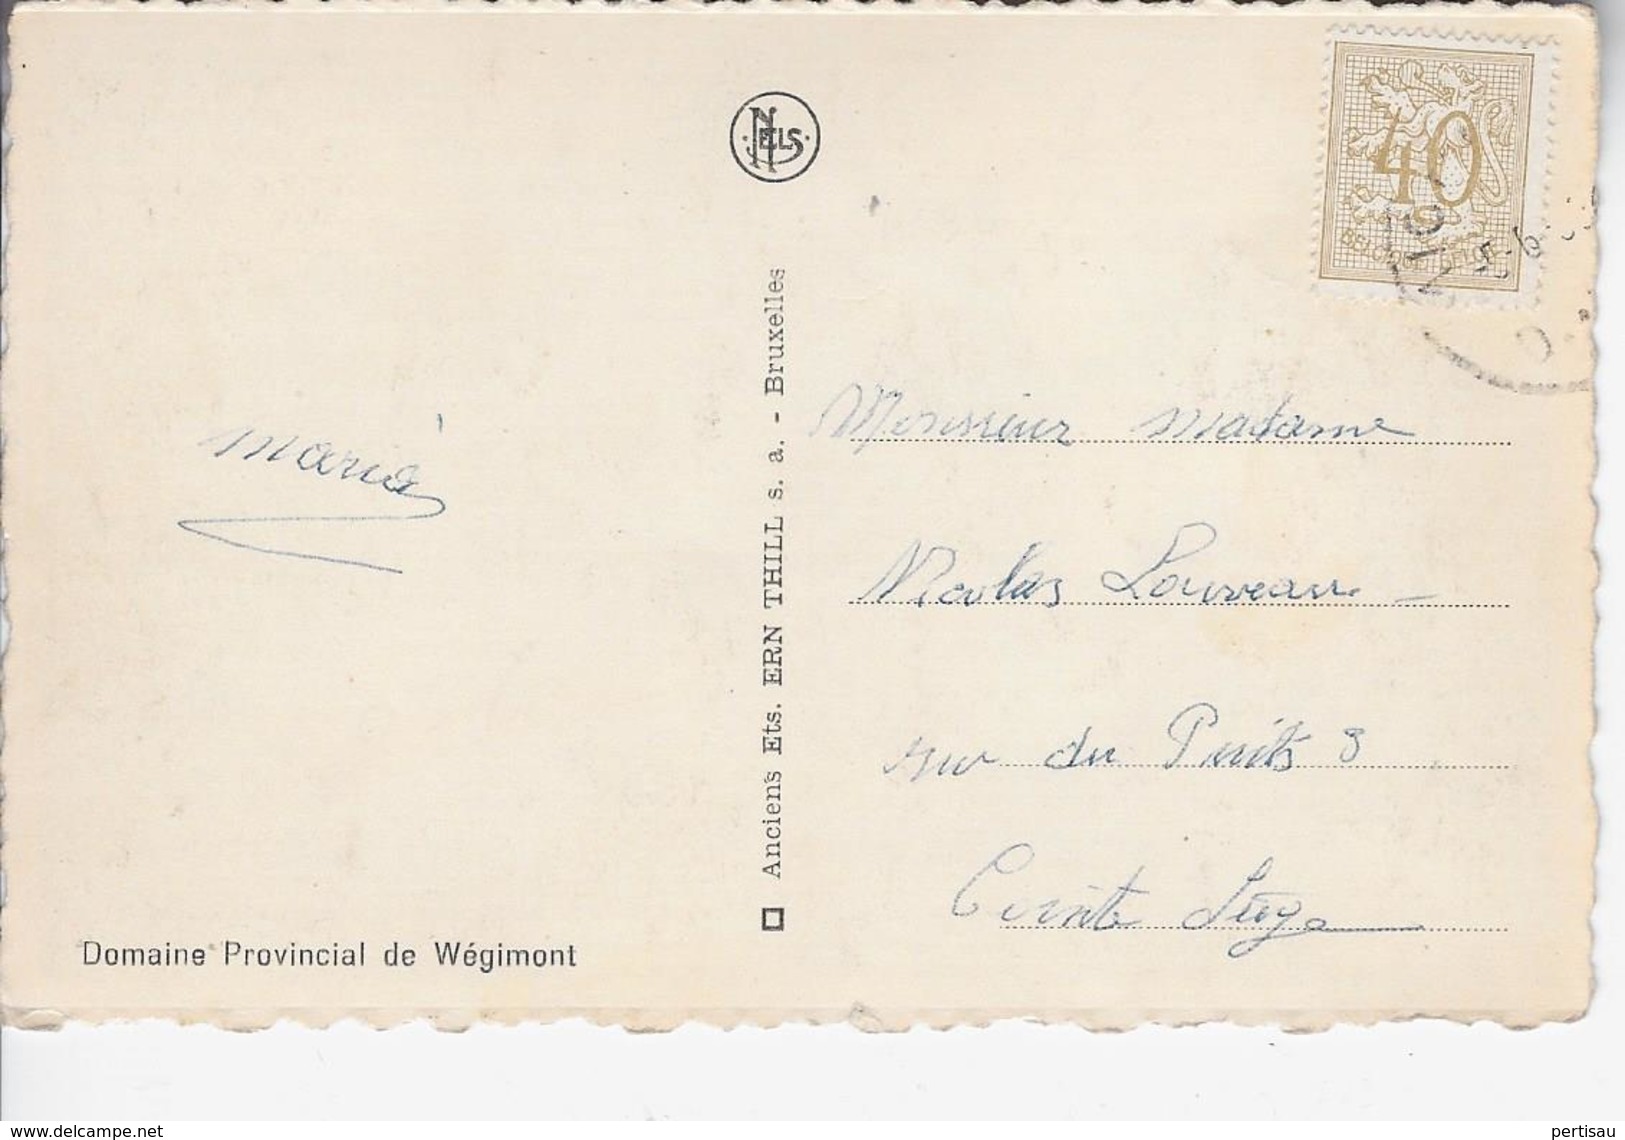 NELS
40
BELGIQUE BELGIE
Maria
Monsieur madame
Nicolas Louveau
rue du Puits 8
Cointe Liège
Anciens Ets. ERN THILL s. a. - Bruxelles
Domaine Provincial de Wégimont
www.delcampe.net
pertisau